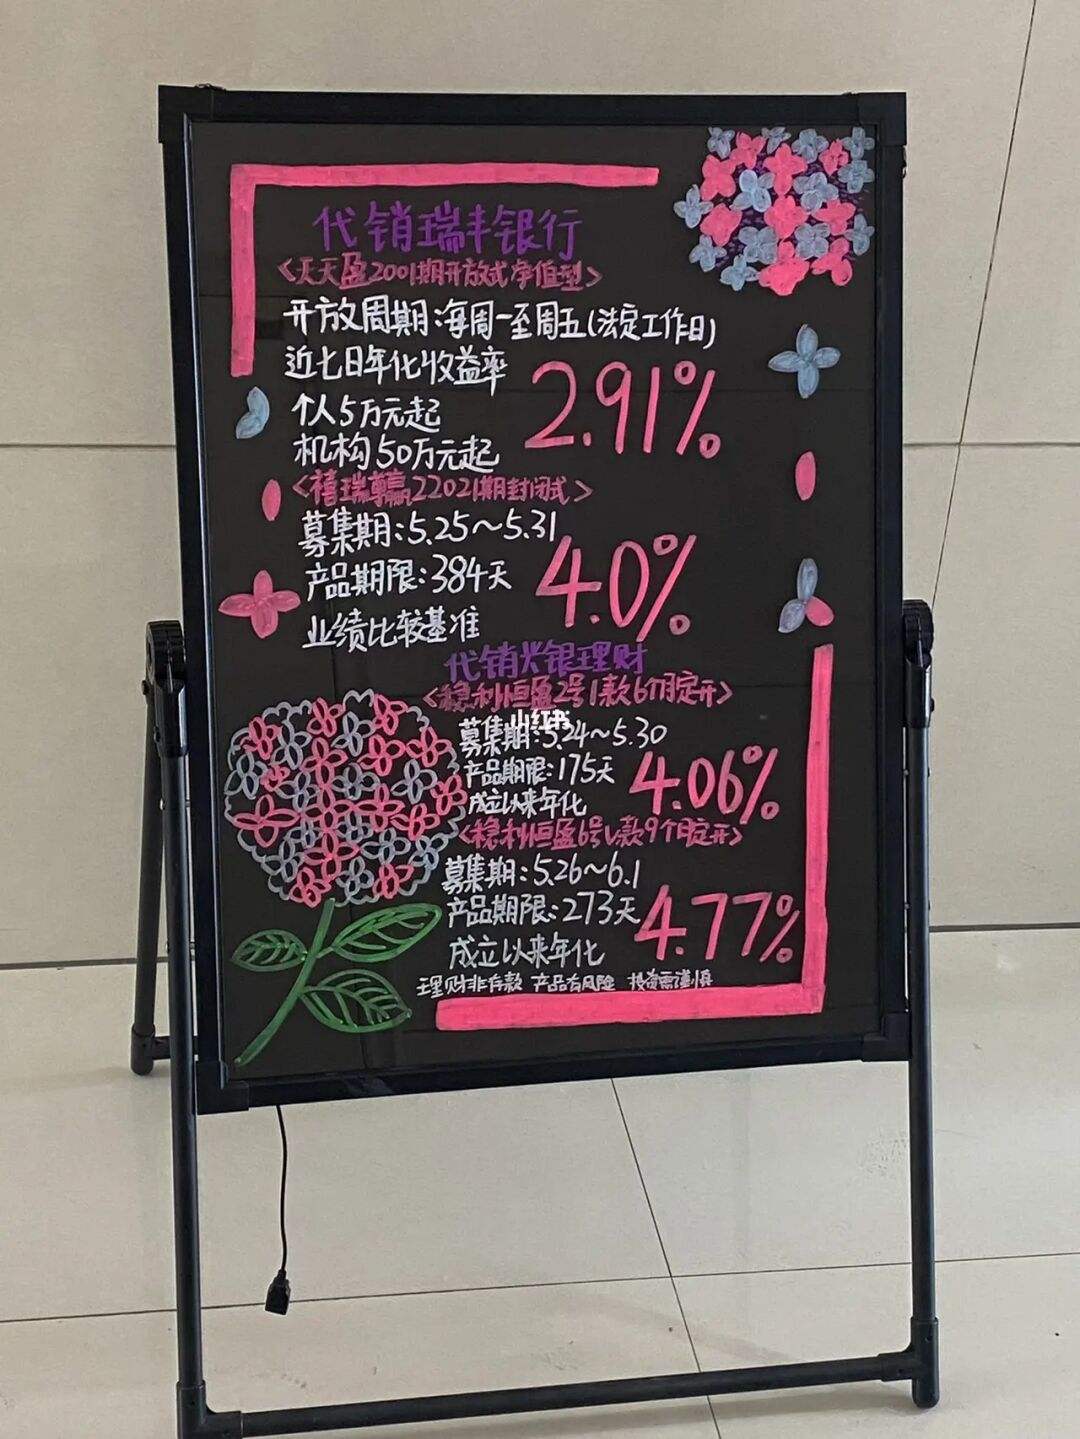 代销瑞丰银行
<天天盈2001期开放式净值型>
开放周期:每周一至周五(法定工作日)
近七日年化收益率
2.91%
个人5万元起
机构50万元起
<禧瑞尊赢22021期封闭式>
募集期:5.25~5.31
产品期限:384天
4.0%
业绩比较基准
代销兴银理财
<稳利恒盈2号1款6个月定开>
小红书
募集期:5.24~5.30
产品期限:175天
4.06%
成立以来年化
<稳利恒盈6号V款9个月定开>
募集期:5.26~6.1
产品期限:273天
4.77%
成立以来年化
理财非存款 产品有风险 投资需谨慎